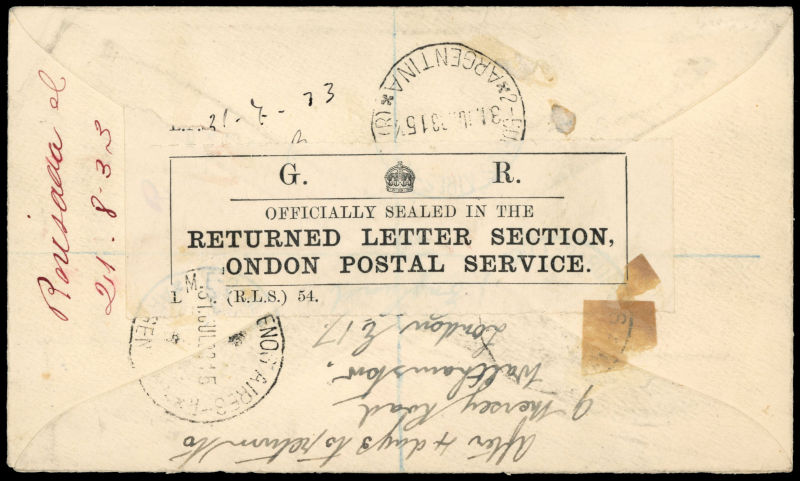 Revisada el
21-8-33
31-7-33
ARGENTINA
31.JUL.33 15
(R)
G. R.
OFFICIALLY SEALED IN THE
RETURNED LETTER SECTION,
ONDON POSTAL SERVICE.
L (R.L.S.) 54.
31.JUL.33 15
ENOS AIRES
After 4 days to return to
9 Mersey Road
Walthamstow.
London E 17.